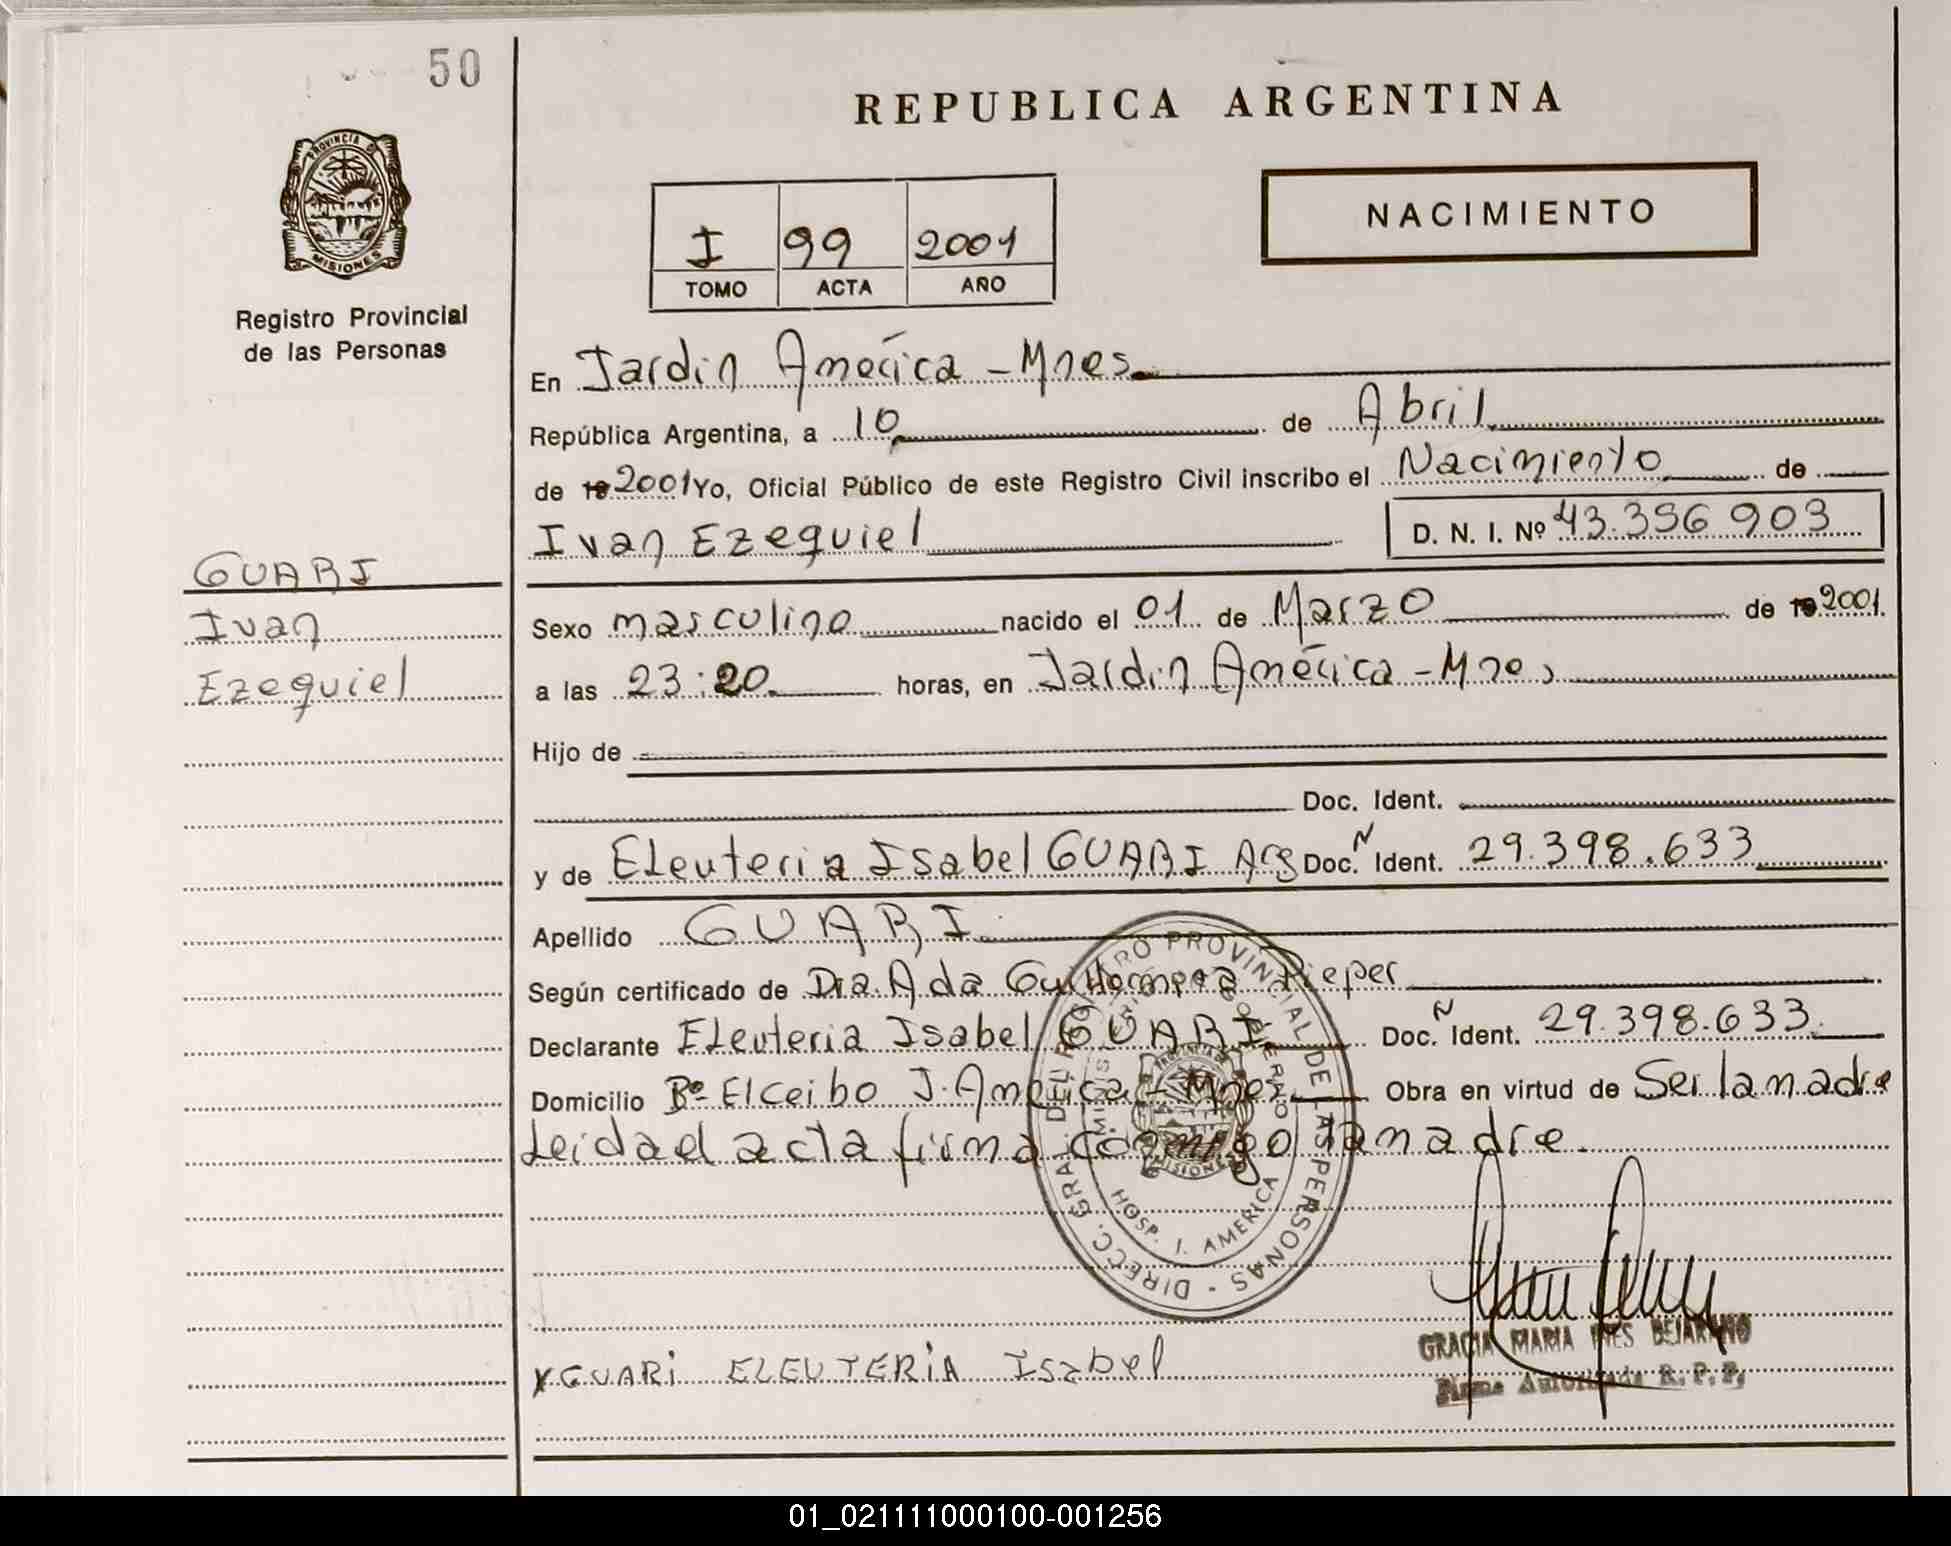 50
REPUBLICA ARGENTINA
PROVINCIA DE
MISIONES
Registro Provincial
de las Personas
NACIMIENTO
I 99 2001
TOMO ACTA AÑO
En Jardin América - Mnes.
República Argentina, a 10 de Abril
de 19 2001 Yo, Oficial Público de este Registro Civil inscribo el Nacimiento de
Ivan Ezequiel D. N. I. Nº 43.356.903
GUARI
Ivan
Ezequiel
Sexo masculino nacido el 01 de Marzo de 19 2001.
a las 23:20 horas, en Jardin América - Mnes
Hijo de
Doc. Ident.
y de Eleuteria Isabel GUARI Arg Doc. N Ident. 29.398.633
Apellido GUARI
Según certificado de Dra. Ada Guillermina Pieper
Declarante Eleuteria Isabel GUARI Doc. N Ident. 29.398.633
Domicilio Bº El Ceibo J. America - Mnes Obra en virtud de Ser la madre
Leida el acta firma conmigo la madre.
DIRECC. GRAL. DEL REGISTRO PROVINCIAL DE LAS PERSONAS
HOSP. J. AMERICA
X GUARI ELEUTERIA ISabel
GRACIA MARIA INES BEJARANO
Firma Autorizada R. P. P.
01_021111000100-001256